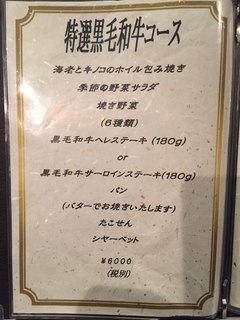 特選黒毛和牛コース
海老とキノコのホイル包み焼き
季節の野菜サラダ
焼き野菜
(6種類)
黒毛和牛ヘレステーキ (180g)
or
黒毛和牛サーロインステーキ(180g)
パン
(バターでお焼きいたします)
たこせん
シャーベット
¥6000
(税別)